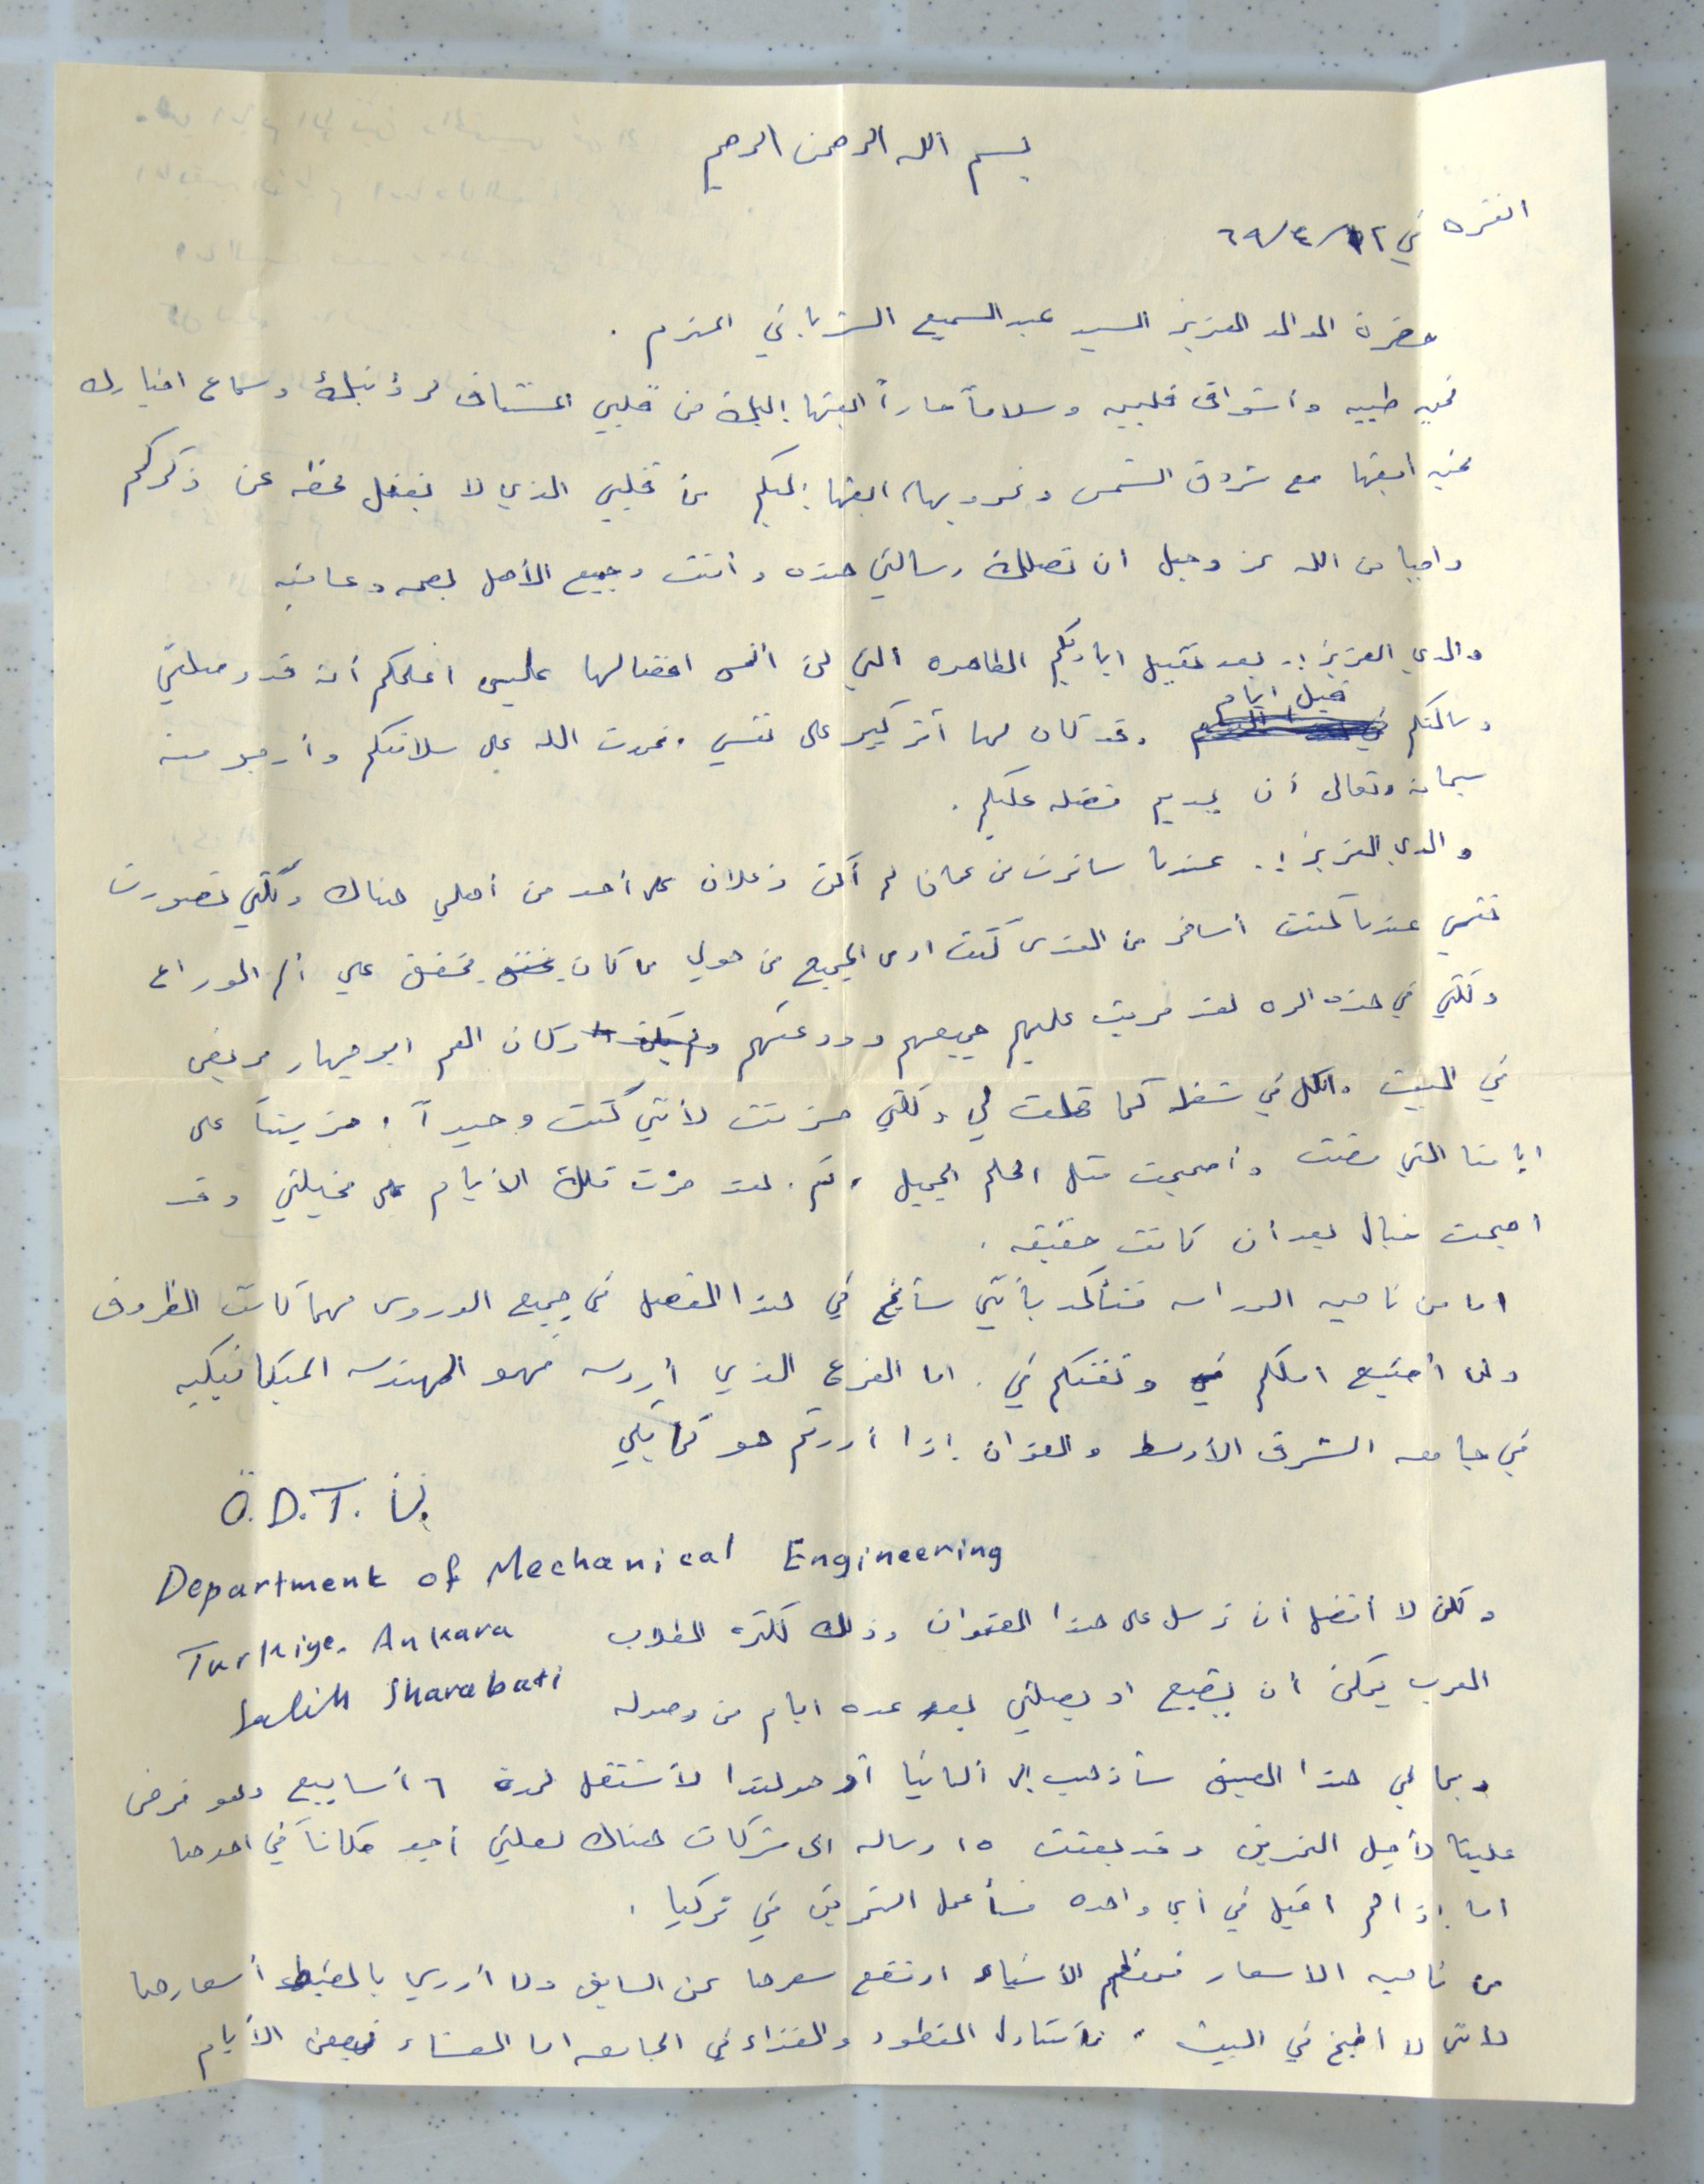 بسم الله الرحمن الرحيم
انقره في ١٢/٤/٦٩
حضرة الوالد العزيز السيد عبد السميع الشرباتي المحترم .
تحيه طيبه وأشواق قلبيه وسلاماً حاراً ابعثها إليك من قلبي المشتاق لرؤيتك وسماع اخبارك
تحيه ابعثها مع شروق الشمس وغروبها، ابعثها إليكم من قلبي الذي لا يغفل لحظه عن ذكركم
راجيا من الله عز وجل ان تصلك رسالتي هذه وأنت وجميع الأهل بصحه وعافيه
والدي العزيز !. بعد تقبيل اياديكم الطاهره التي لن أنسى افضالها علي اعلمكم أنه قد وصلتني
رسالتكم قبل ايام وقد كان لها أثر كبير على نفسي . فحمدت الله على سلامتكم وأرجو منه
سبحانه وتعالى أن يديم فضله عليكم .
والدي العزيز !. عندما سافرت من عمان لم أكن زعلان على أحد من أهلي هناك ولكني تصورت
نفسي عندما كنت أسافر من القدس كنت ارى الجميع من حولي مما كان يخفف علي ألم الوداع
ولكني في هذه المره لقد مريت عليهم جميعهم وودعتهم وكان العم ابو جهاد مريض
في البيت والكل في شغله كما قلت لي ولكني حزنت لأنني كنت وحيداً ، حزيناً على
ايامنا التي مضت وأصبحت مثل الحلم الجميل ، نعم . لقد مرّت تلك الأيام على مخيلتي وقد
اصبحت خيال بعد أن كانت حقيقه .
اما من ناحيه الدراسه فتأكد بأنني سأنجح في هذا الفصل في جميع الدروس مهما كانت الظروف
ولن أضيع املكم وثقتكم في . اما الفرع الذي أدرسه فهو الهندسه الميكانيكيه
في جامعه الشرق الأوسط والعنوان إذا أردتم هو كما يلي
Ö.D.T.Ü.
Department of Mechanical Engineering
Turkiye. Ankara
Salih Sharabati
ولكن لا أفضل أن ترسل على هذا العنوان وذلك لكثره الطلاب
العرب يمكن أن يضيع او يصلني بعد عده ايام من وصوله
وبحالي هذا الصيف سأذهب إلى ألمانيا أو هولندا لأشتغل لمدة ٦ أسابيع وهو فرض
علينا لأجل التمرين وقد بعثت ١٥ رساله الى شركات هناك لعلني أجد مكاناً في احدها
اما إذا لم اقبل في أي واحده فسأعمل التمرين في تركيا .
من ناحيه الأسعار فمعظم الأشياء ارتفع سعرها عن السابق ولا أدري بالضبط أسعارها
لأنني لا أطبخ في البيت ، فأتناول الفطور والغذاء في الجامعه اما العشاء فبعض الأيام